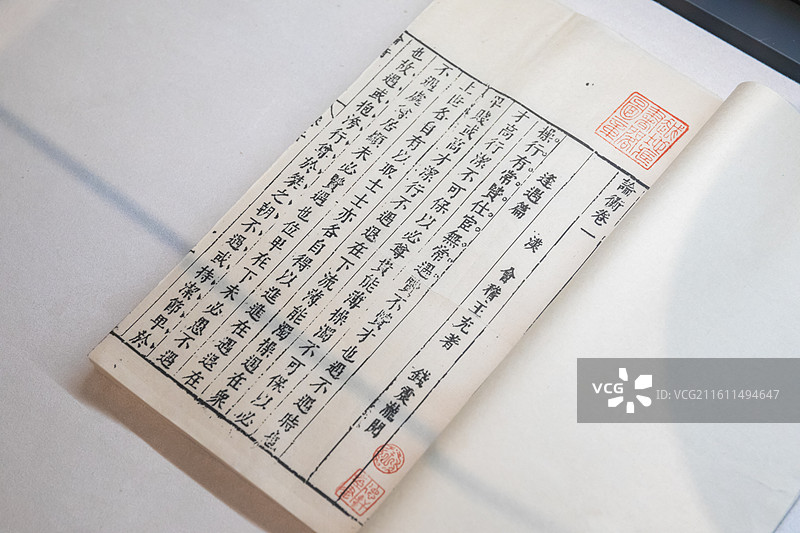 論衡卷一
漢 會稽王充著 錢震瀧閱
逢遇篇
操行有常賢仕宦無常遇賢不賢才也遇不遇時也
才高行潔不可保以必尊貴能薄操濁不可保以必
卑賤或高才潔行不遇退在下流薄能濁操遇在衆
上世各自有以取士士亦各自得以進進在遇退在
不遇處尊居顯未必賢遇也位卑在下未必愚不遇
也故遇或抱洿行尊於桀之朝不遇或持潔節卑於
VCG
ID: VCG211611494647